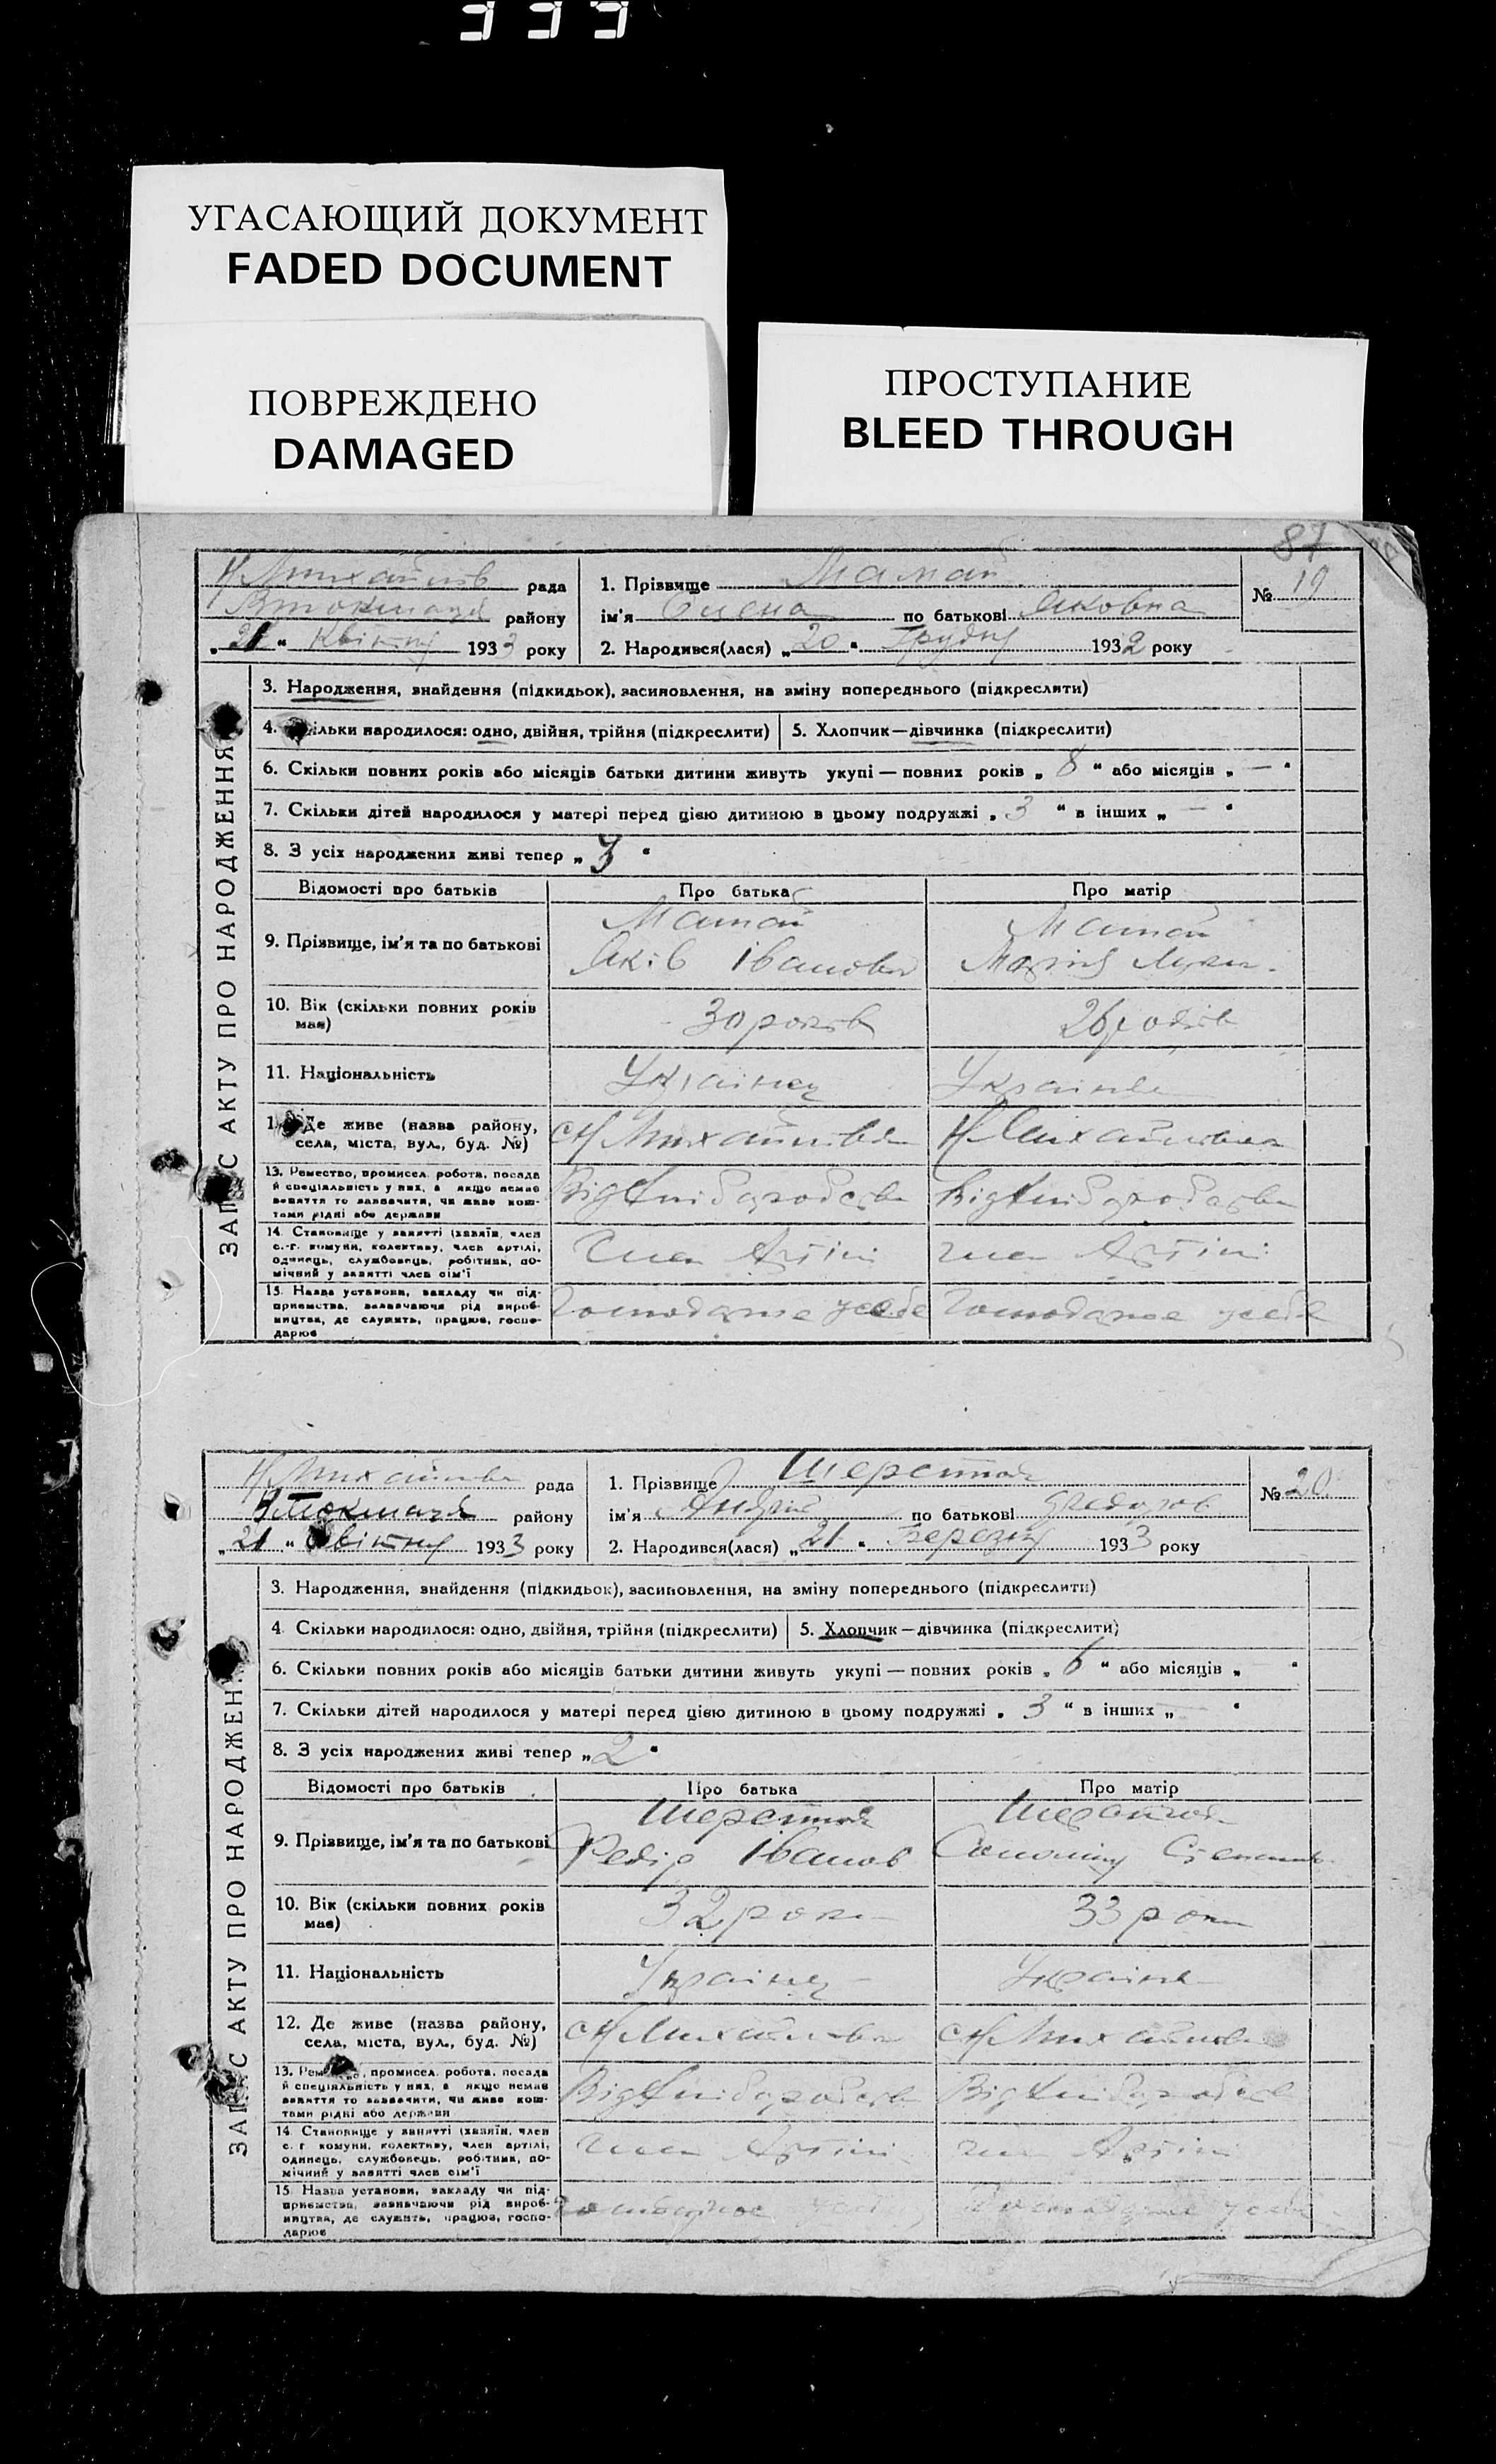 333
УГАСАЮЩИЙ ДОКУМЕНТ
FADED DOCUMENT
ПОВРЕЖДЕНО
DAMAGED
ПРОСТУПАНИЕ
BLEED THROUGH
87
Н Михайлів рада
ВТокмацьк району
„21“ Квітня 1933 року
1. Прізвище Мамай
ім'я Олена по батькові Яковна
2. Народився(лася) „20“ Грудня 1932 року
№ 19
ЗАПИС АКТУ ПРО НАРОДЖЕННЯ
3. Народження, знайдення (підкидьок), засиновлення, на зміну попереднього (підкреслити)
4. Скільки народилося: одно, двійня, трійня (підкреслити) 5. Хлопчик—дівчинка (підкреслити)
6. Скільки повних років або місяців батьки дитини живуть укупі — повних років „8“ або місяців „—“
7. Скільки дітей народилося у матері перед цією дитиною в цьому подружжі „3“ в інших „—“
8. З усіх народжених живі тепер „3“
Відомості про батьків Про батька Про матір
9. Прізвище, ім'я та по батькові
Мамай Мамай
Яків Іванович Марія
10. Вік (скільки повних років має) 30 років 26 років
11. Національність Українец Українка
12. Де живе (назва району, села, міста, вул., буд. №) с Н Михайлівка Н Михайлівка
13. Ремество, промисел, робота, посада
й спеціальність у них, а якщо немає
заняття то зазначити, чи живе кош-
тами рідні або держави
Від Хліборобства Від Хліборобства
14. Становище у занятті (хазяїн, член
с.-г. комуни, колективу, член артілі,
одинець, службовець, робітник, по-
мічний у занятті член сім'ї
Член Артілі член Артілі
15. Назва установи, закладу чи під-
приємства, зазначаючи рід вироб-
ництва, де служить, працює, госпо-
дарює
Господарює у себе Господарює у себе
Н Михайлівка рада
ВТокмацьк району
„21“ Квітня 1933 року
1. Прізвище Шерстюк
ім'я Андрій по батькові Федоров
2. Народився(лася) „21“ Березня 1933 року
№ 20
ЗАПИС АКТУ ПРО НАРОДЖЕННЯ
3. Народження, знайдення (підкидьок), засиновлення, на зміну попереднього (підкреслити)
4. Скільки народилося: одно, двійня, трійня (підкреслити) 5. Хлопчик—дівчинка (підкреслити)
6. Скільки повних років або місяців батьки дитини живуть укупі — повних років „6“ або місяців „—“
7. Скільки дітей народилося у матері перед цією дитиною в цьому подружжі „3“ в інших „—“
8. З усіх народжених живі тепер „2“
Відомості про батьків Про батька Про матір
9. Прізвище, ім'я та по батькові
Федір Іванов Соломія Степанів
10. Вік (скільки повних років має) 32 роки 33 роки
11. Національність Українец Українка
12. Де живе (назва району, села, міста, вул., буд. №) с Н Михайлівка с Н Михайлівка
13. Ремество, промисел, робота, посада
й спеціальність у них, а якщо немає
заняття то зазначити, чи живе кош-
тами рідні або держави
Від Хліборобства Від Хліборобства
14. Становище у занятті (хазяїн, член
с.-г. комуни, колективу, член артілі,
одинець, службовець, робітник, по-
мічний у занятті член сім'ї
Член Артілі член Артілі
15. Назва установи, закладу чи під-
приємства, зазначаючи рід вироб-
ництва, де служить, працює, госпо-
дарює
Господарює Господарює у себе